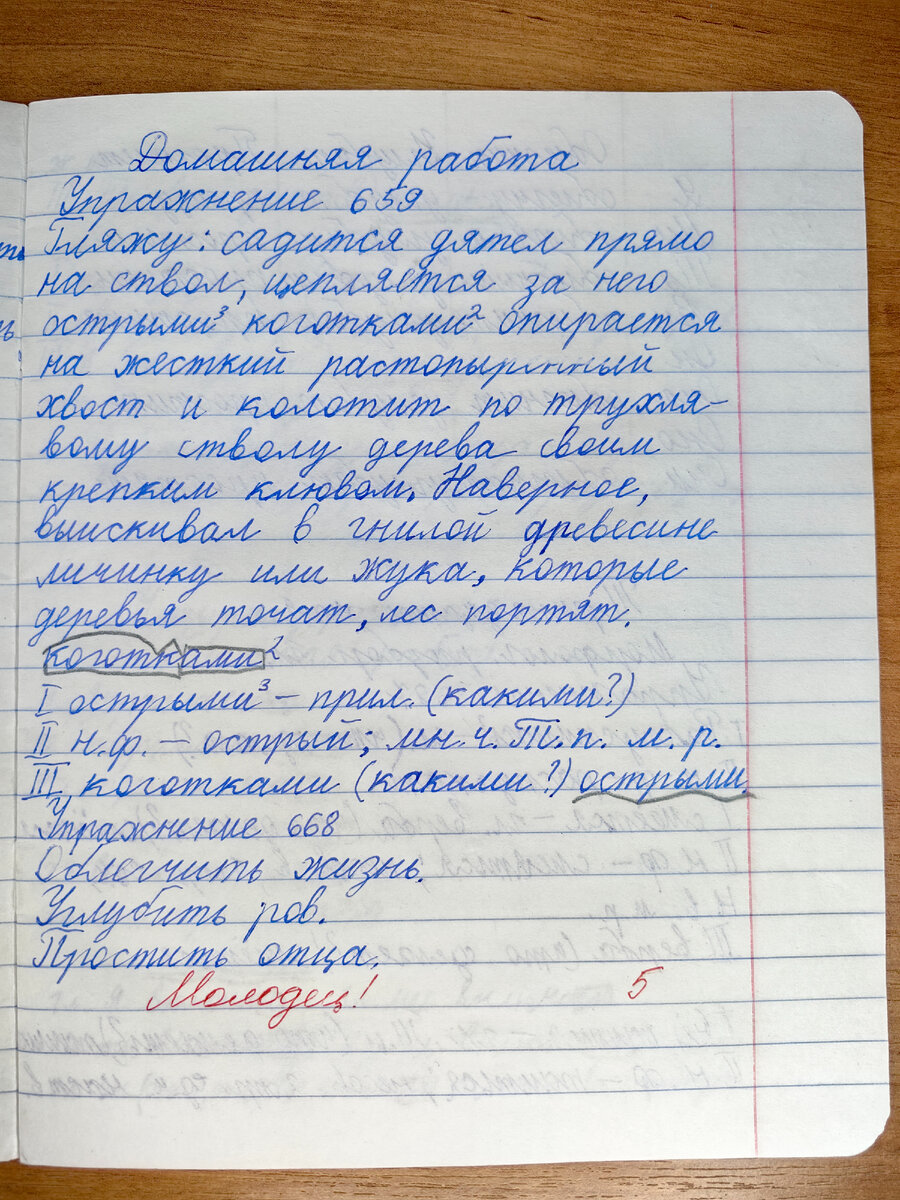 Домашняя работа
Упражнение 659
Гляжу: садится дятел прямо
на ствол, цепляется за него
острыми³ коготками² опирается
на жесткий растопыренный
хвост и колотит по трухля-
вому стволу дерева своим
крепким клювом. Наверное,
выискивал в гнилой древесине
личинку или жука, которые
деревья точат, лес портят.
коготками²
I острыми³ – прил. (какими?)
II н.ф. – острый; мн.ч. Т.п. м.р.
III коготками (какими?) острыми.
Упражнение 668
Облегчить жизнь.
Углубить ров.
Простить отца.
Молодец! 5